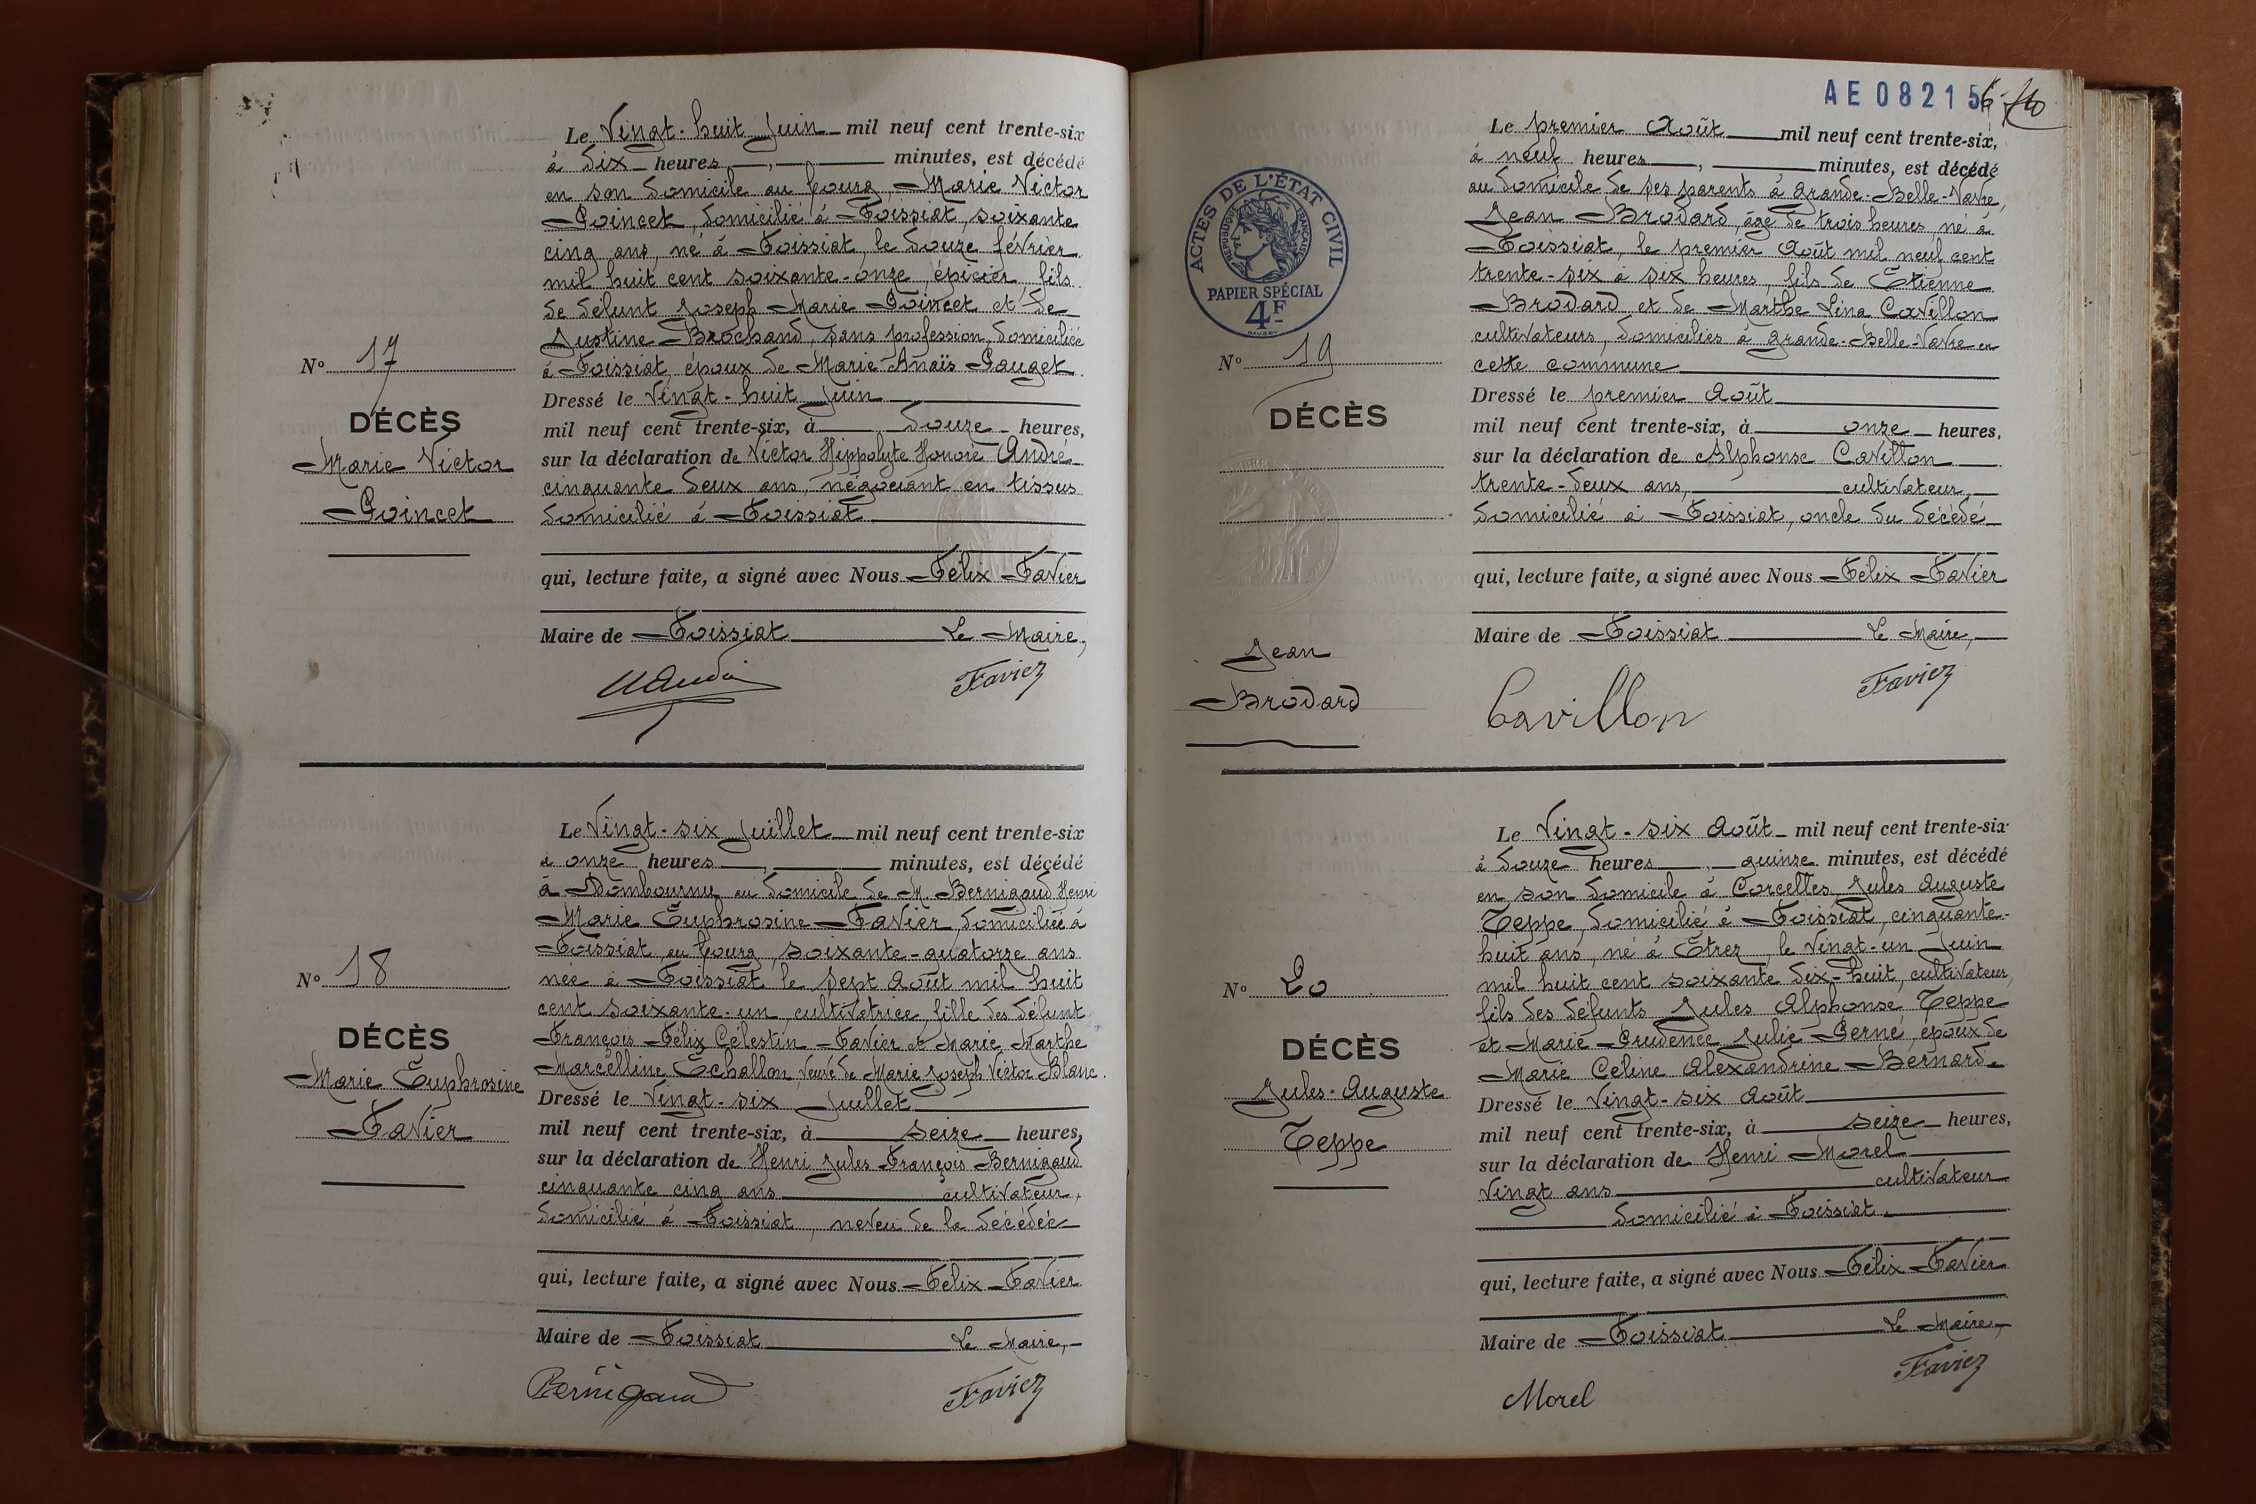 Le Vingt-huit Juin mil neuf cent trente-six
à Six heures, minutes, est décédé
en son domicile au bourg, Marie Victor
Poincet, domicilié à Foissiat, soixante
cinq ans, né à Foissiat, le douze février
mil huit cent soixante-onze, épicier, fils
de défunt Joseph Marie Poincet et de
Justine Brochand, sans profession, domiciliée
à Foissiat, époux de Marie Anaïs Pauget.
Dressé le Vingt-huit Juin
mil neuf cent trente-six, à douze heures,
sur la déclaration de Victor Hippolyte Honoré André
cinquante deux ans, négociant en tissus
domicilié à Foissiat
qui, lecture faite, a signé avec Nous Félix Favier
Maire de Foissiat Le Maire,
Favier
N° 17
DÉCÈS
Marie Victor
Poincet
Le Vingt-six Juillet mil neuf cent trente-six
à onze heures, minutes, est décédé
à au domicile de M. Bernigaud Henri
Marie Euphrosine Favier, domiciliée à
Foissiat, au bourg, soixante-quatorze ans
née à Foissiat le sept Août mil huit
cent soixante-un, cultivatrice, fille des défunt
François Félix Célestin Favier et Marie Marthe
Marcelline Echallon, veuve de Marie Joseph Victor Blanc.
Dressé le Vingt-six Juillet
mil neuf cent trente-six, à seize heures,
sur la déclaration de Henri Jules François Bernigaud
cinquante cinq ans cultivateur,
domicilié à Foissiat, neveu de la décédée
qui, lecture faite, a signé avec Nous Félix Favier
Maire de Foissiat Le Maire,
Bernigaud Favier
N° 18
DÉCÈS
Marie Euphrosine
Favier
AE 08215
ACTES DE L'ÉTAT CIVIL
RÉPUBLIQUE FRANÇAISE
PAPIER SPÉCIAL
4F
Le premier Août mil neuf cent trente-six,
à neuf heures, minutes, est décédé
au domicile de ses parents à Grande-Belle-Vavre,
Jean Brodard, âgé de trois heures, né à
Foissiat, le premier Août mil neuf cent
trente-six à six heures, fils de Étienne
Brodard et de Marthe Lina Cavillon
cultivateurs, domiciliés à Grande-Belle-Vavre en
cette commune
Dressé le premier Août
mil neuf cent trente-six, à onze heures,
sur la déclaration de Alphonse Cavillon
trente-deux ans, cultivateur,
domicilié à Foissiat, oncle du décédé
qui, lecture faite, a signé avec Nous Félix Favier
Maire de Foissiat Le Maire,
Cavillon Favier
N° 19
DÉCÈS
Jean
Brodard
Le Vingt-six Août mil neuf cent trente-six
à douze heures quinze minutes, est décédé
en son domicile à Corcelles, Jules Auguste
Teppe, domicilié à Foissiat, cinquante-
huit ans, né à Étrez, le vingt-un Juin
mil huit cent soixante dix-huit, cultivateur,
fils des défunts Jules Alphonse Teppe
et Marie Prudence Julie Perné, époux de
Marie Céline Alexandrine Bernard.
Dressé le Vingt-six Août
mil neuf cent trente-six, à seize heures,
sur la déclaration de Henri Morel
Vingt ans cultivateur
domicilié à Foissiat.
qui, lecture faite, a signé avec Nous Félix Favier
Maire de Foissiat Le Maire,
Morel Favier
N° 20
DÉCÈS
Jules-Auguste
Teppe